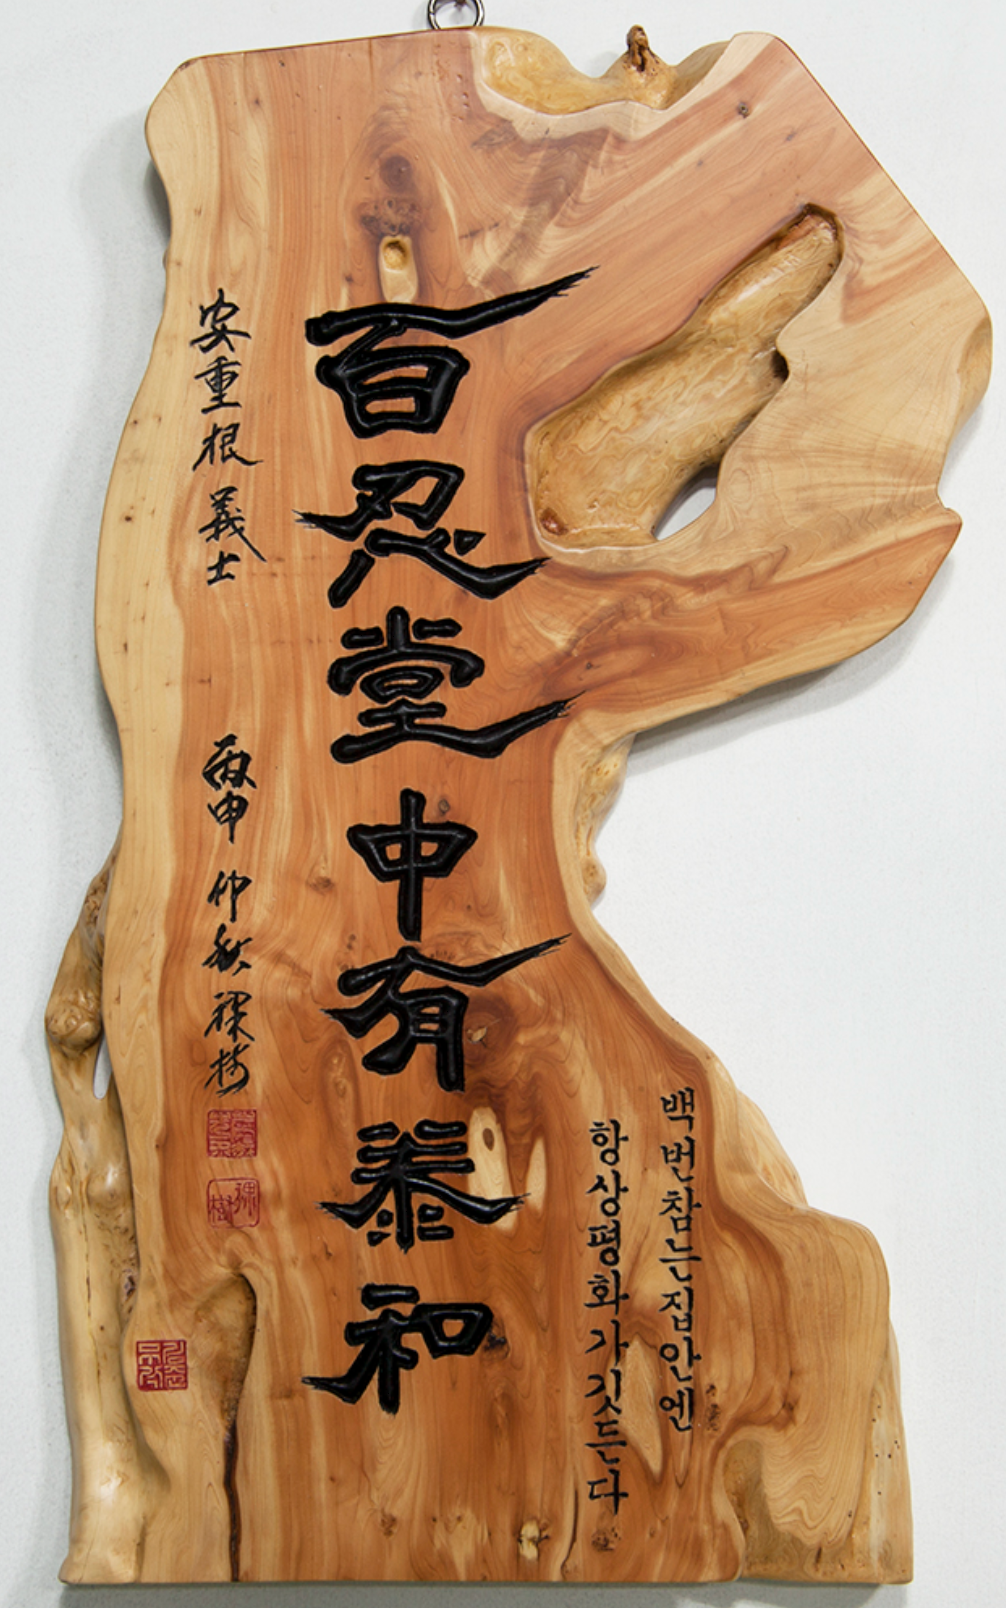 백번참는집안엔
항상평화가깃든다
百忍堂中有泰和
安重根 義士 丙申 仲秋